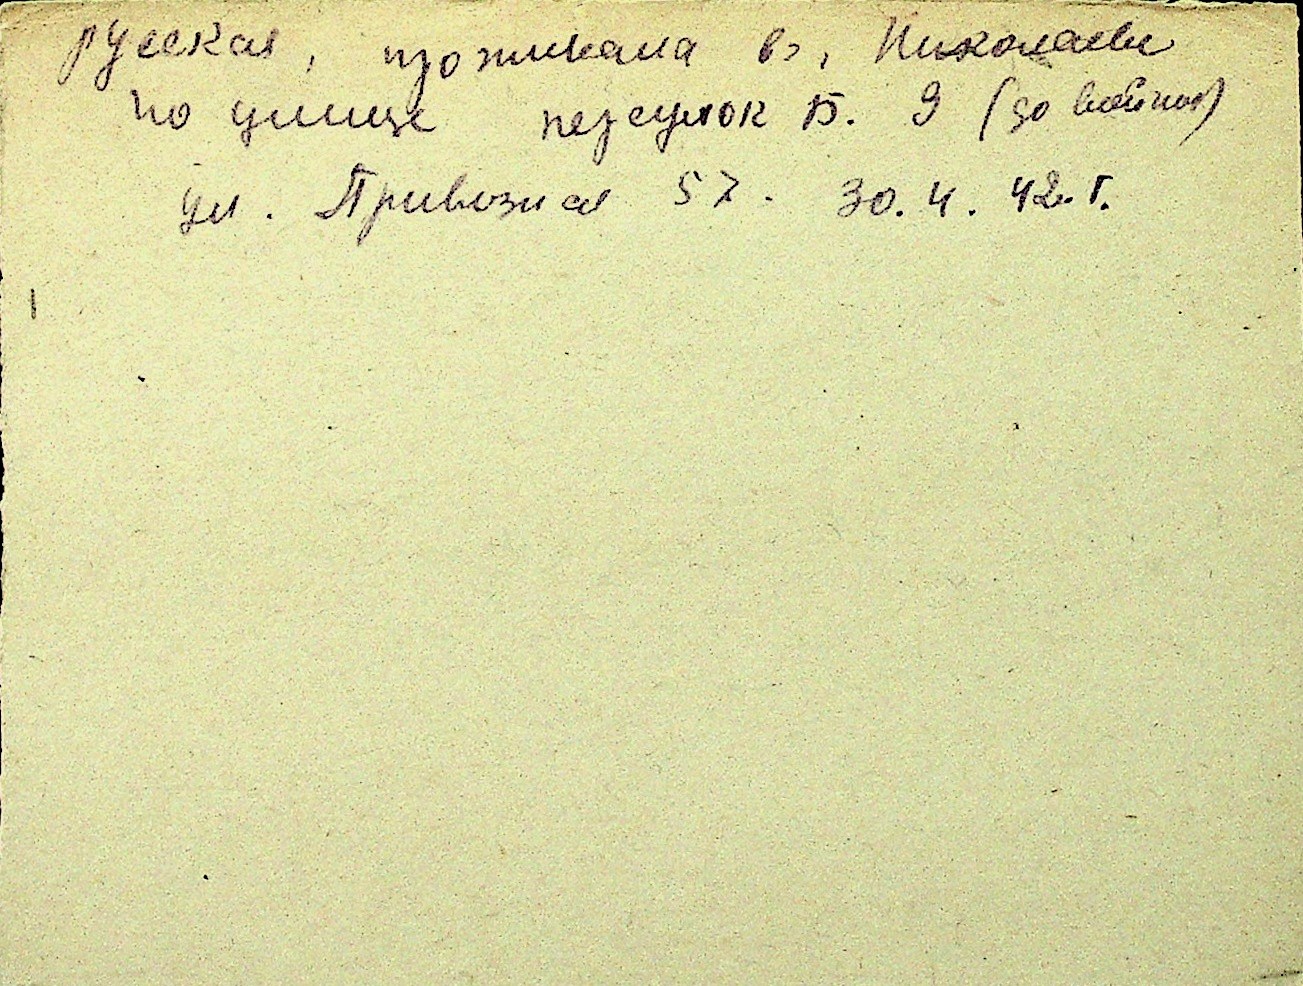 русская, проживала в г. Николаеве
по улице переулок Б. 9 (до войны)
ул. Привозная 57. 30.4.42.г.